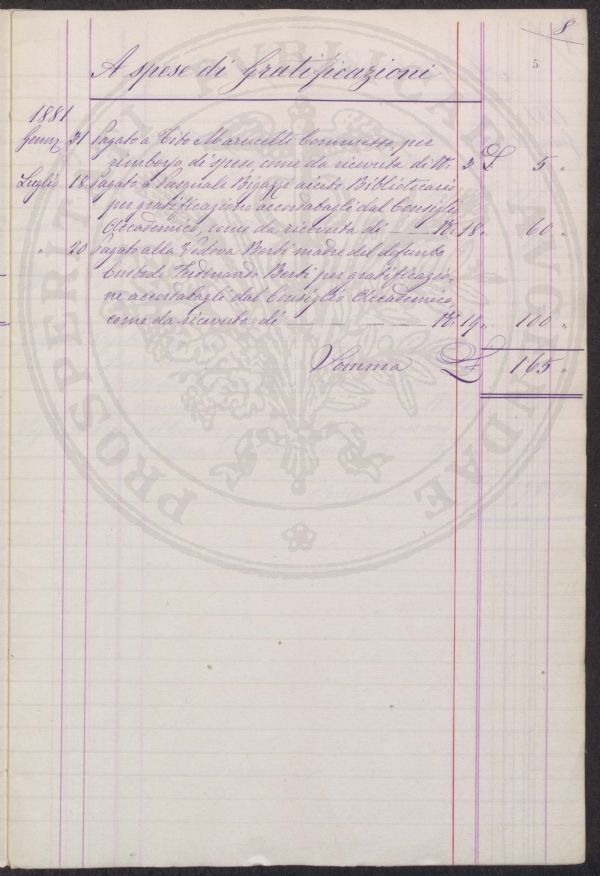 8
5
A spese di Gratificazioni
1881
Genn. 31 Pagato a Tito Marucelli Commesso, per
rimborso di spese come da ricevuta di N. 2 £ 5 "
Luglio 18 Pagato a Pasquale Bigazzi aiuto Bibliotecario
per gratificazione accordatagli dal Consiglio
Accademico, come da ricevuta di — N. 18 " 60 "
" 20 Pagato alla Vedova Berti madre del defunto
Custode Ferdinando Berti per gratificazio-
ne accordatagli dal Consiglio Accademico,
come da ricevuta di — N. 19 " 100 "
Somma £ 165 "
PROSPERITATI PUBLICAE AUGENDAE